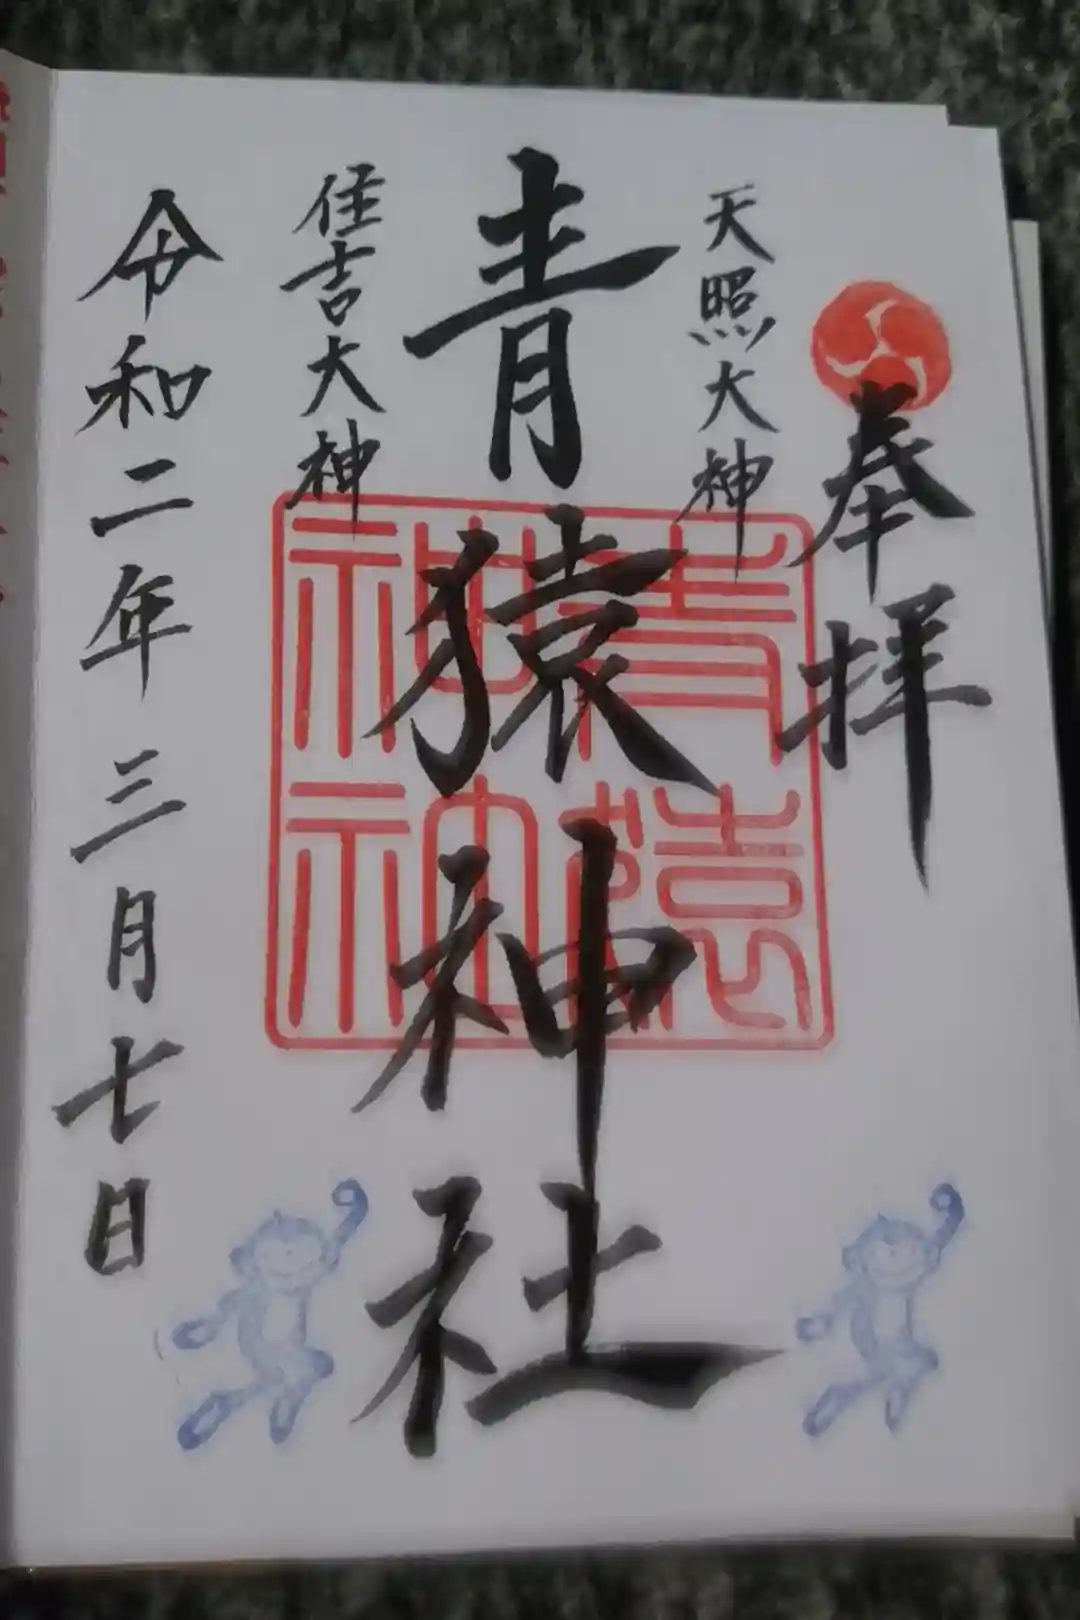 奉拝
天照大神
青猿神社
住吉大神
令和二年三月七日
青猿
神社